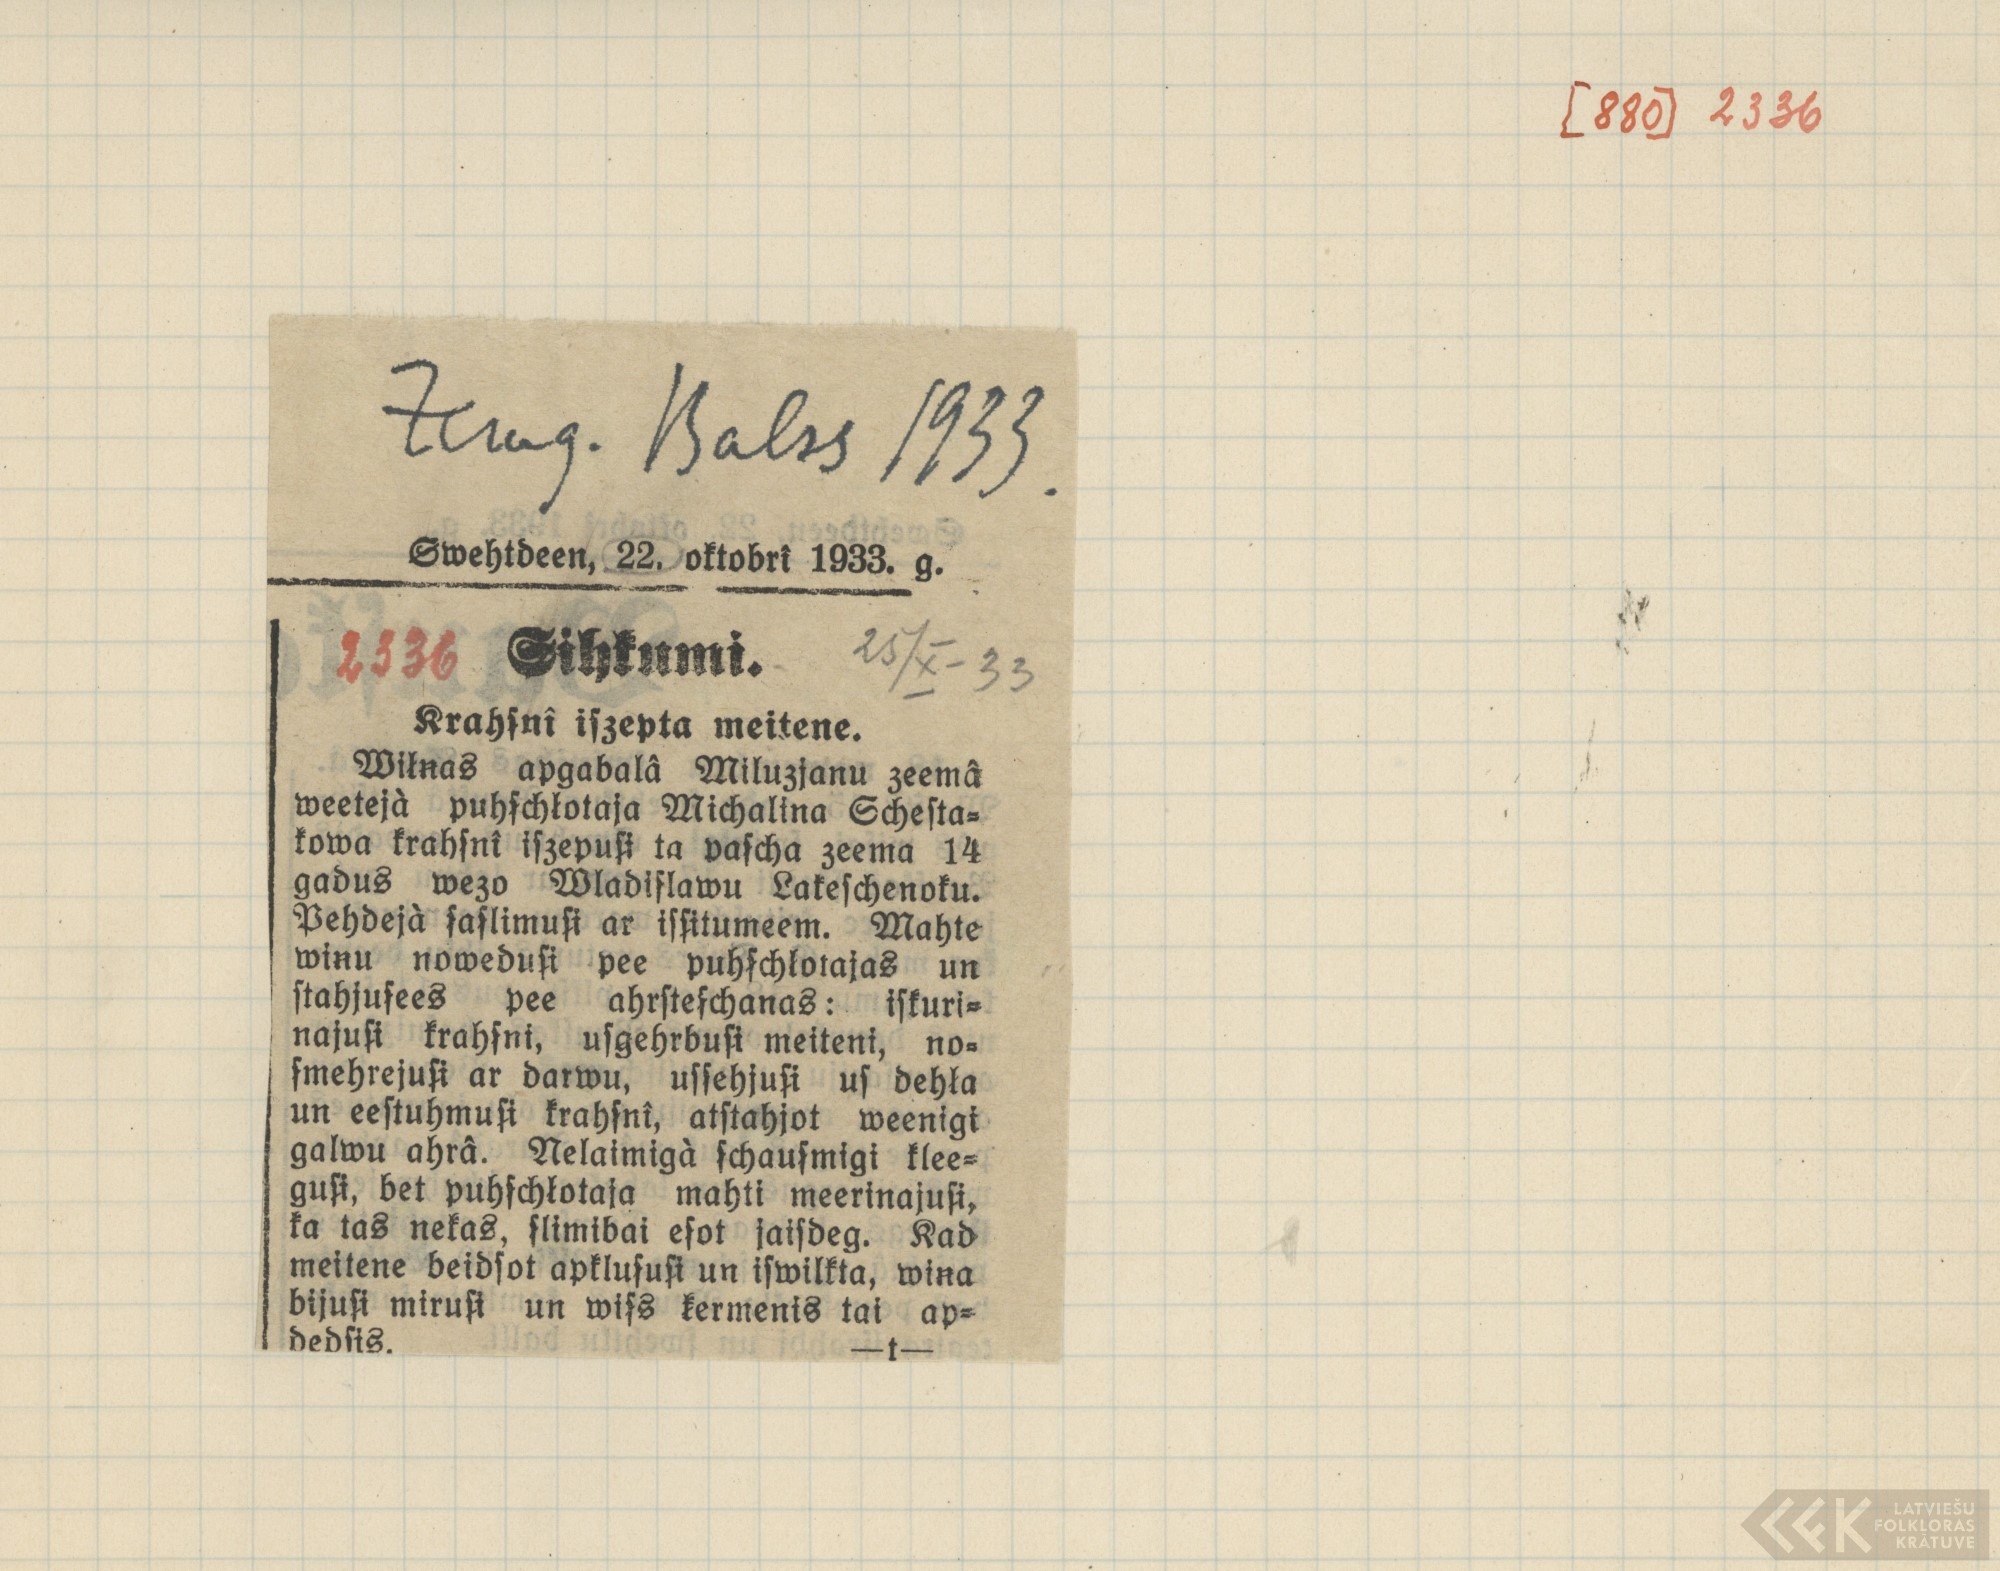 [880] 2336
Zemg. Balss 1933.
Swehtdeen, 22. oktobrî 1933. g.
2336 Sihkumi. 25/X-33
Krahſnî iſzepta meitene.
Wiłnas apgabalâ Miluzjanu zeemâ
weetejà puhſchłotaja Michalina Scheſta-
kowa krahſnî iſzepuſi ta paſcha zeema 14
gadus wezo Wladiſlawu Lakeſchenoku.
Pehdejà ſaſlimuſi ar iſſitumeem. Mahte
winu noweduſi pee puhſchłotajas un
ſtahjuſees pee ahrſteſchanas: iſkuri-
najuſi krahſni, uſgehrbuſi meiteni, no-
ſmehrejuſi ar darwu, uſſehjuſi uſ dehła
un eeſtuhmuſi krahſnî, atſtahjot weenigi
galwu ahrâ. Nelaimigà ſchauſmigi klee-
guſi, bet puhſchłotaja mahti meerinajuſi,
ka tas nekas, ſlimibai eſot jaiſdeg. Kad
meitene beidſot apkluſuſi un iſwilkta, wina
bijuſi miruſi un wiſs kermenis tai ap-
dedſis. —t—
LATVIEŠU
FOLKLORAS
KRĀTUVE